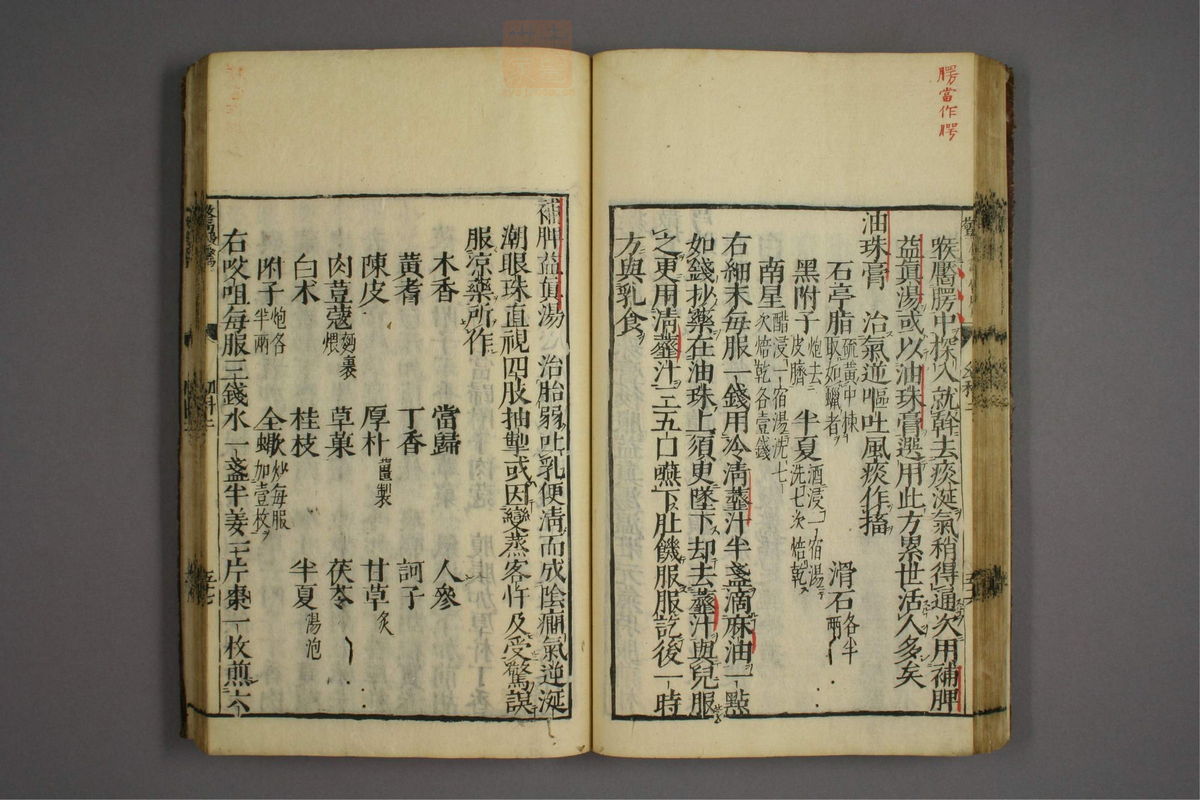 腭當作腭
喉靨腭中探入就斡去痰涎氣稍得通次用補脾
益真湯或以油珠膏選用此方累世活人多矣
油珠膏　治氣逆嘔吐風痰作搐
石亭脂硫黃中揀取如蠟者　滑石各半兩
黑附子炮去皮臍　半夏酒浸一宿湯洗七次焙乾
南星醋浸一宿湯洗七次焙乾各壹錢
右細末每服一錢用冷清虀汁半盞滴麻油一點
如錢抄藥在油珠上須臾墜下却去虀汁與兒服
之更用清虀汁三五口嚥下肚饑服服訖後一時
方與乳食
補脾益真湯　治胎弱吐乳便清而成陰癇氣逆涎
潮眼珠直視四肢抽掣或因變蒸客忤及受驚誤
服涼藥所作
木香　當歸　人參
黃耆　丁香　訶子
陳皮　厚朴薑製　甘草炙
肉荳蔻麪裹煨　草菓　茯苓
白朮　桂枝　半夏湯泡
附子炮各半兩　全蠍炒每服加壹枚
右㕮咀每服三錢水一盞半姜二片棗一枚煎六